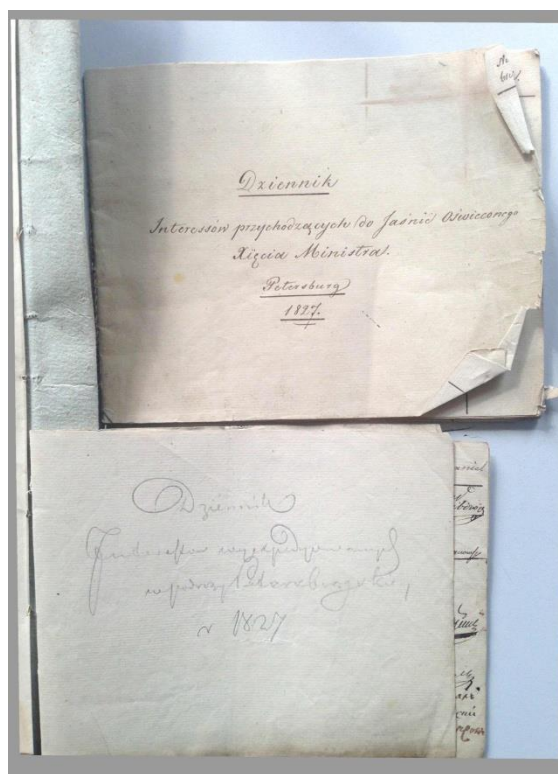 Dziennik
Interessów przychodzących do Jaśnie Oświeconego
Xięcia Ministra.
Petersburg
1827.
Dziennik
Interessów wyexpedyowanych
w podroży Petersburgskiey,
r 1827